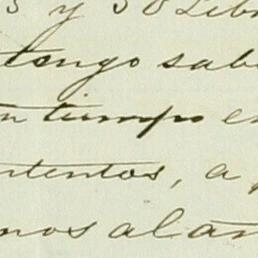 y 50 Lib
tengo sab
tiempo e
ntentos, a
mos al an